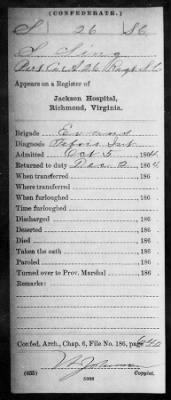 (CONFEDERATE.)
S 26 S.C.
S. King
Pvt. Co. A 26 Regt S.C.
Appears on a Register of
Jackson Hospital,
Richmond, Virginia.
Brigade Evans
Diagnosis Febris Int.
Admitted Oct 5, 1864
Returned to duty Dec 2, 1864
When transferred , 186
Where transferred
When furloughed , 186
Time furloughed
Discharged , 186
Deserted , 186
Died , 186
Takes the oath , 186
Paroled , 186
Turned over to Prov. Marshal , 186
Remarks:
Confed. Arch., Chap. 6, File No. 186, page 640
(635)
Copyist.